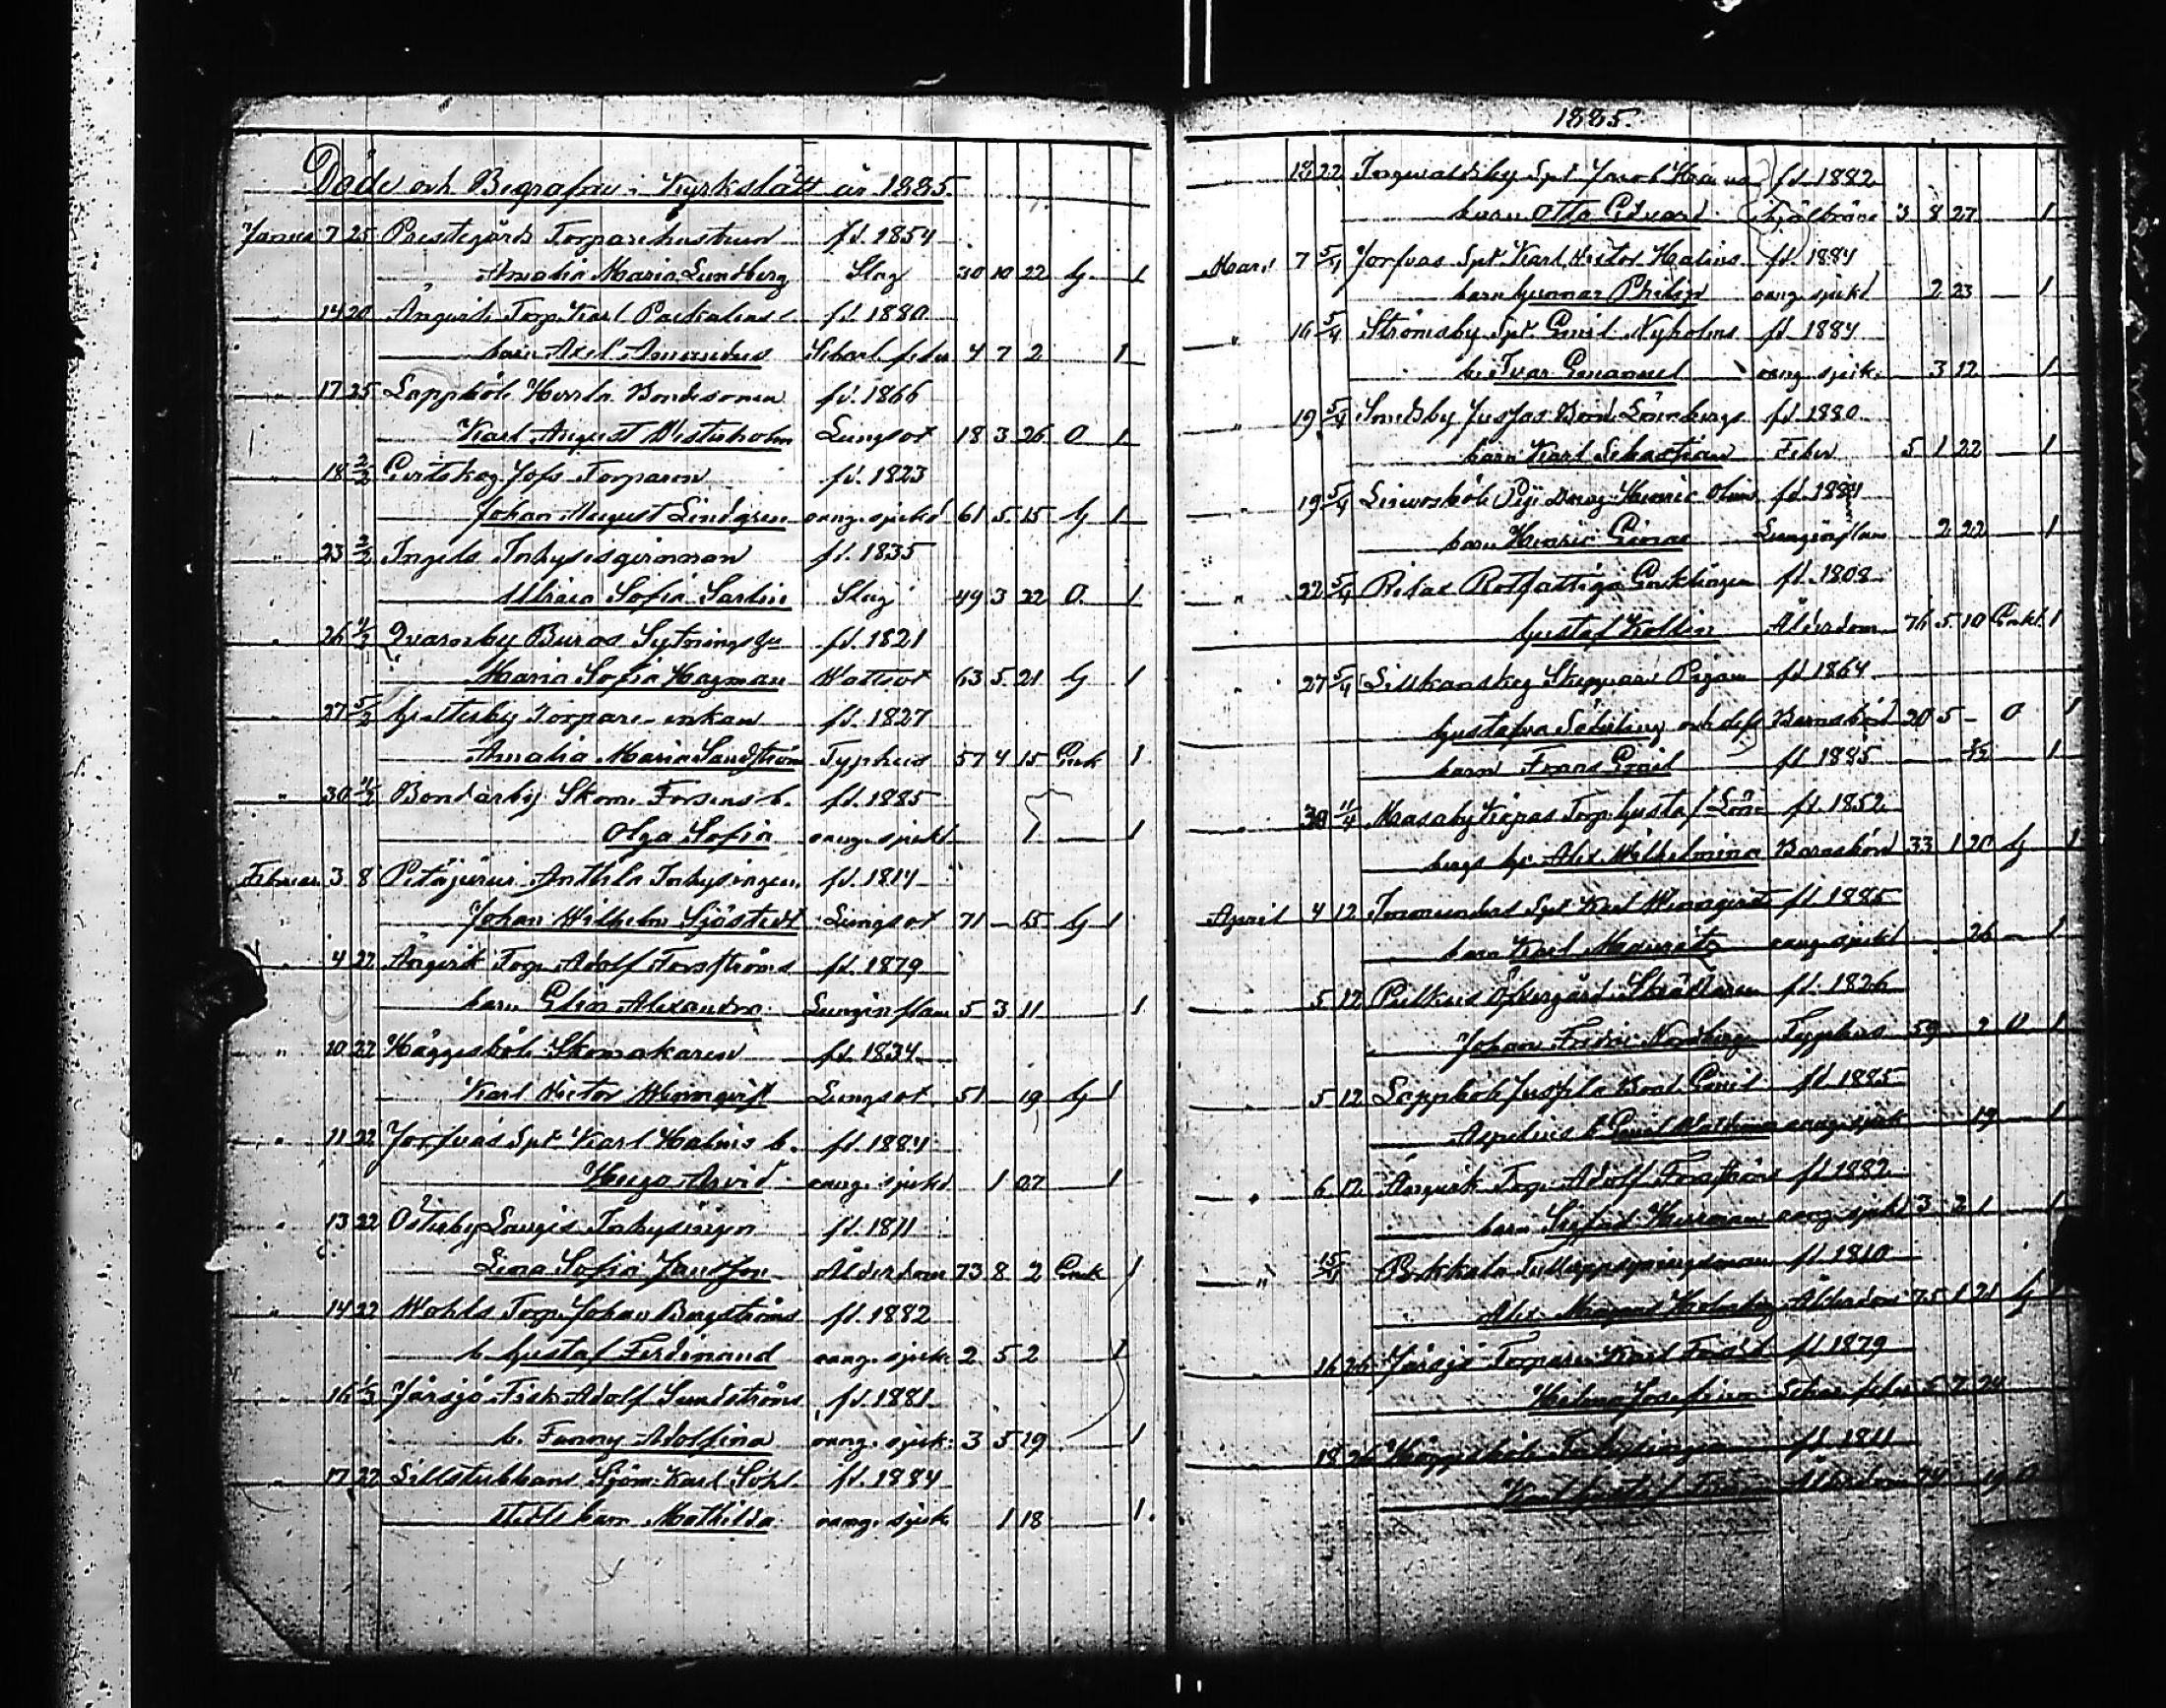 Döde och Begrafne i Kyrkslätt år 1885.
Januari 7 25 Prestegårds Torparehustrun fd. 1854
Amalia Maria Lundberg Slag 30 10 22 G 1
" 14 20 Ängvik Torp. Karl fd. 1880
barn Axel Amandus Scharl. feber 4 7 2 1
" 17 25 Lappböle Herrla Bondesonen fd. 1866
Karl August Westerholm Lungsot 18 3 26 O 1
18 2/2 Evitskog Jofs Torparen fd. 1823
Johan August Lindgren oang. sjukd 61 5 15 G 1
" 23 2/2 Ingels fd. 1835
Ulrica Sofia Sarlin Slag 49 3 22 O. 1
" 26 Qvarnby Buras Sytnings fd. 1821
Maria Sofia Hagman Wattsot 63 5 21 G 1
" 27 5/2 Torpare enkan fd. 1827
Amalia Maria Sandström Typhus 57 4 15 Enk 1
" 30 Bondarby Skom. Forsens b. fd. 1885
Olga Sofia oang. sjukd 1 1
Februari 3 8 Pitäjärvi Anttila Inhysingen fd. 1814
Johan Wilhelm Sjöstedt Lungsot 71 – 15 G 1
" 4 22 Ängvik Torp. Adolf Forsströms fd. 1879
barn Elin Alexandra Lunginflam 5 3 11 1
" 10 22 Häggesböle Skomakaren fd. 1834
Karl Victor Winnqvist Lungsot 51 – 19 G 1
" 11 22 Jorfvas Spt. Karl Malins b. fd. 1884
Hugo Arvid oang. sjukd. 1 27 1
" 13 22 Österby Inhysingen fd. 1811
Lina Sofia Jansson Ålderdom 73 8 2 Enk 1
" 14 22 Wohls Torp. Johan Bergströms fd. 1882
b. Gustaf Ferdinand oang. sjuk. 2 5 2 1
16 1/3 Järsjö Fisk. Adolf Sundströms fd. 1881
b. Fanny Adolfina oang. sjuk. 3 5 19 1
" 17 22 Sillstubbans Sjöm. Karl Söhl- fd. 1884
stedts barn Mathilda oang. sjuk. 1 18 1.
1885.
" 18 22 Ingvaldsby Spt. Jacob fd. 1882
barn Otto Edvard 3 8 27 1
Mars 7 5/4 Jorfvas Spt. Karl Victor Malins fd. 1884
barn Gunnar Philip oang. sjukd 2 23 1
" 16 5/4 Strömsby Spt. Emil Nyholms fd. 1884
b. Ivar Emanuel oang. sjuk. 3 12 1
" 19 5/4 Smedsby Jusfas Bond. Lönnbergs fd. 1880
barn Karl Sebastian Feber 5 1 22 1
" 19 5/4 fd. 1884
barn Henric Einar Lunginflam 2 22 1
" 22 5/4 Rotfattiga Enklingen fd. 1808
Gustaf Kollin Ålderdom 76 5 10 Enkl. 1
" 27 5/4 Sillkanskog Pigan fd. 1864
Gustafva och dess Barnsbörd 20 5 – O 1
barn Frans Emil fd 1885 1
" 30 11/4 Masaby Torp. Gustaf Lönn- fd. 1852
bergs h. Alex. Wilhelmina Barnsbörd 33 1 20 G 1
April 4 12 Spt Karl Winnqvists fd. 1885
barn Karl Mauritz oang. sjukd 26 1
" 5 12 Östergård Skräddaren fd. 1826
Johan Fredric Nordberg Typhus 59 – 2 O 1
" 5 12 Lappböle Jusfila Bond. Emil fd. 1885
b. Emil oang. sjuk 19 1
" 6 12 Ängvik Torp. Adolf Forsströms fd. 1882
barn Sigfrid Herrman oang. sjukd 3 2 1 1
" 15/4 Porkkala fd. 1810
Alex. Magnus Ålderdom 75 1 21 G
16 26 Järsjö Torparen Karl fd. 1879
Helena Josefina Schar. feber 5 7 24
18 26 Häggesböle Inhysingen fd. 1811
Karl Gustaf Ålderdom 74 19 O